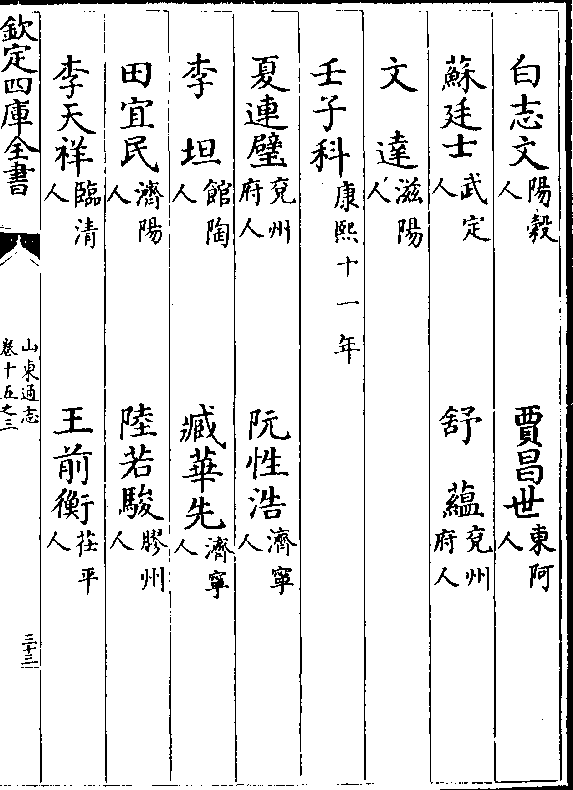 白志文陽穀人　賈昌世東阿人
蘇廷士武定人　舒蘊兖州府人
文達滋陽人
壬子科康熙十一年
夏連璧兖州府人　阮性浩濟寧人
李坦館陶人　臧華先濟寧人
田宜民濟陽人　陸若駿膠州人
李天祥臨清人　王前衡茌平人
欽定四庫全書　山東通志卷十五之三　三十三